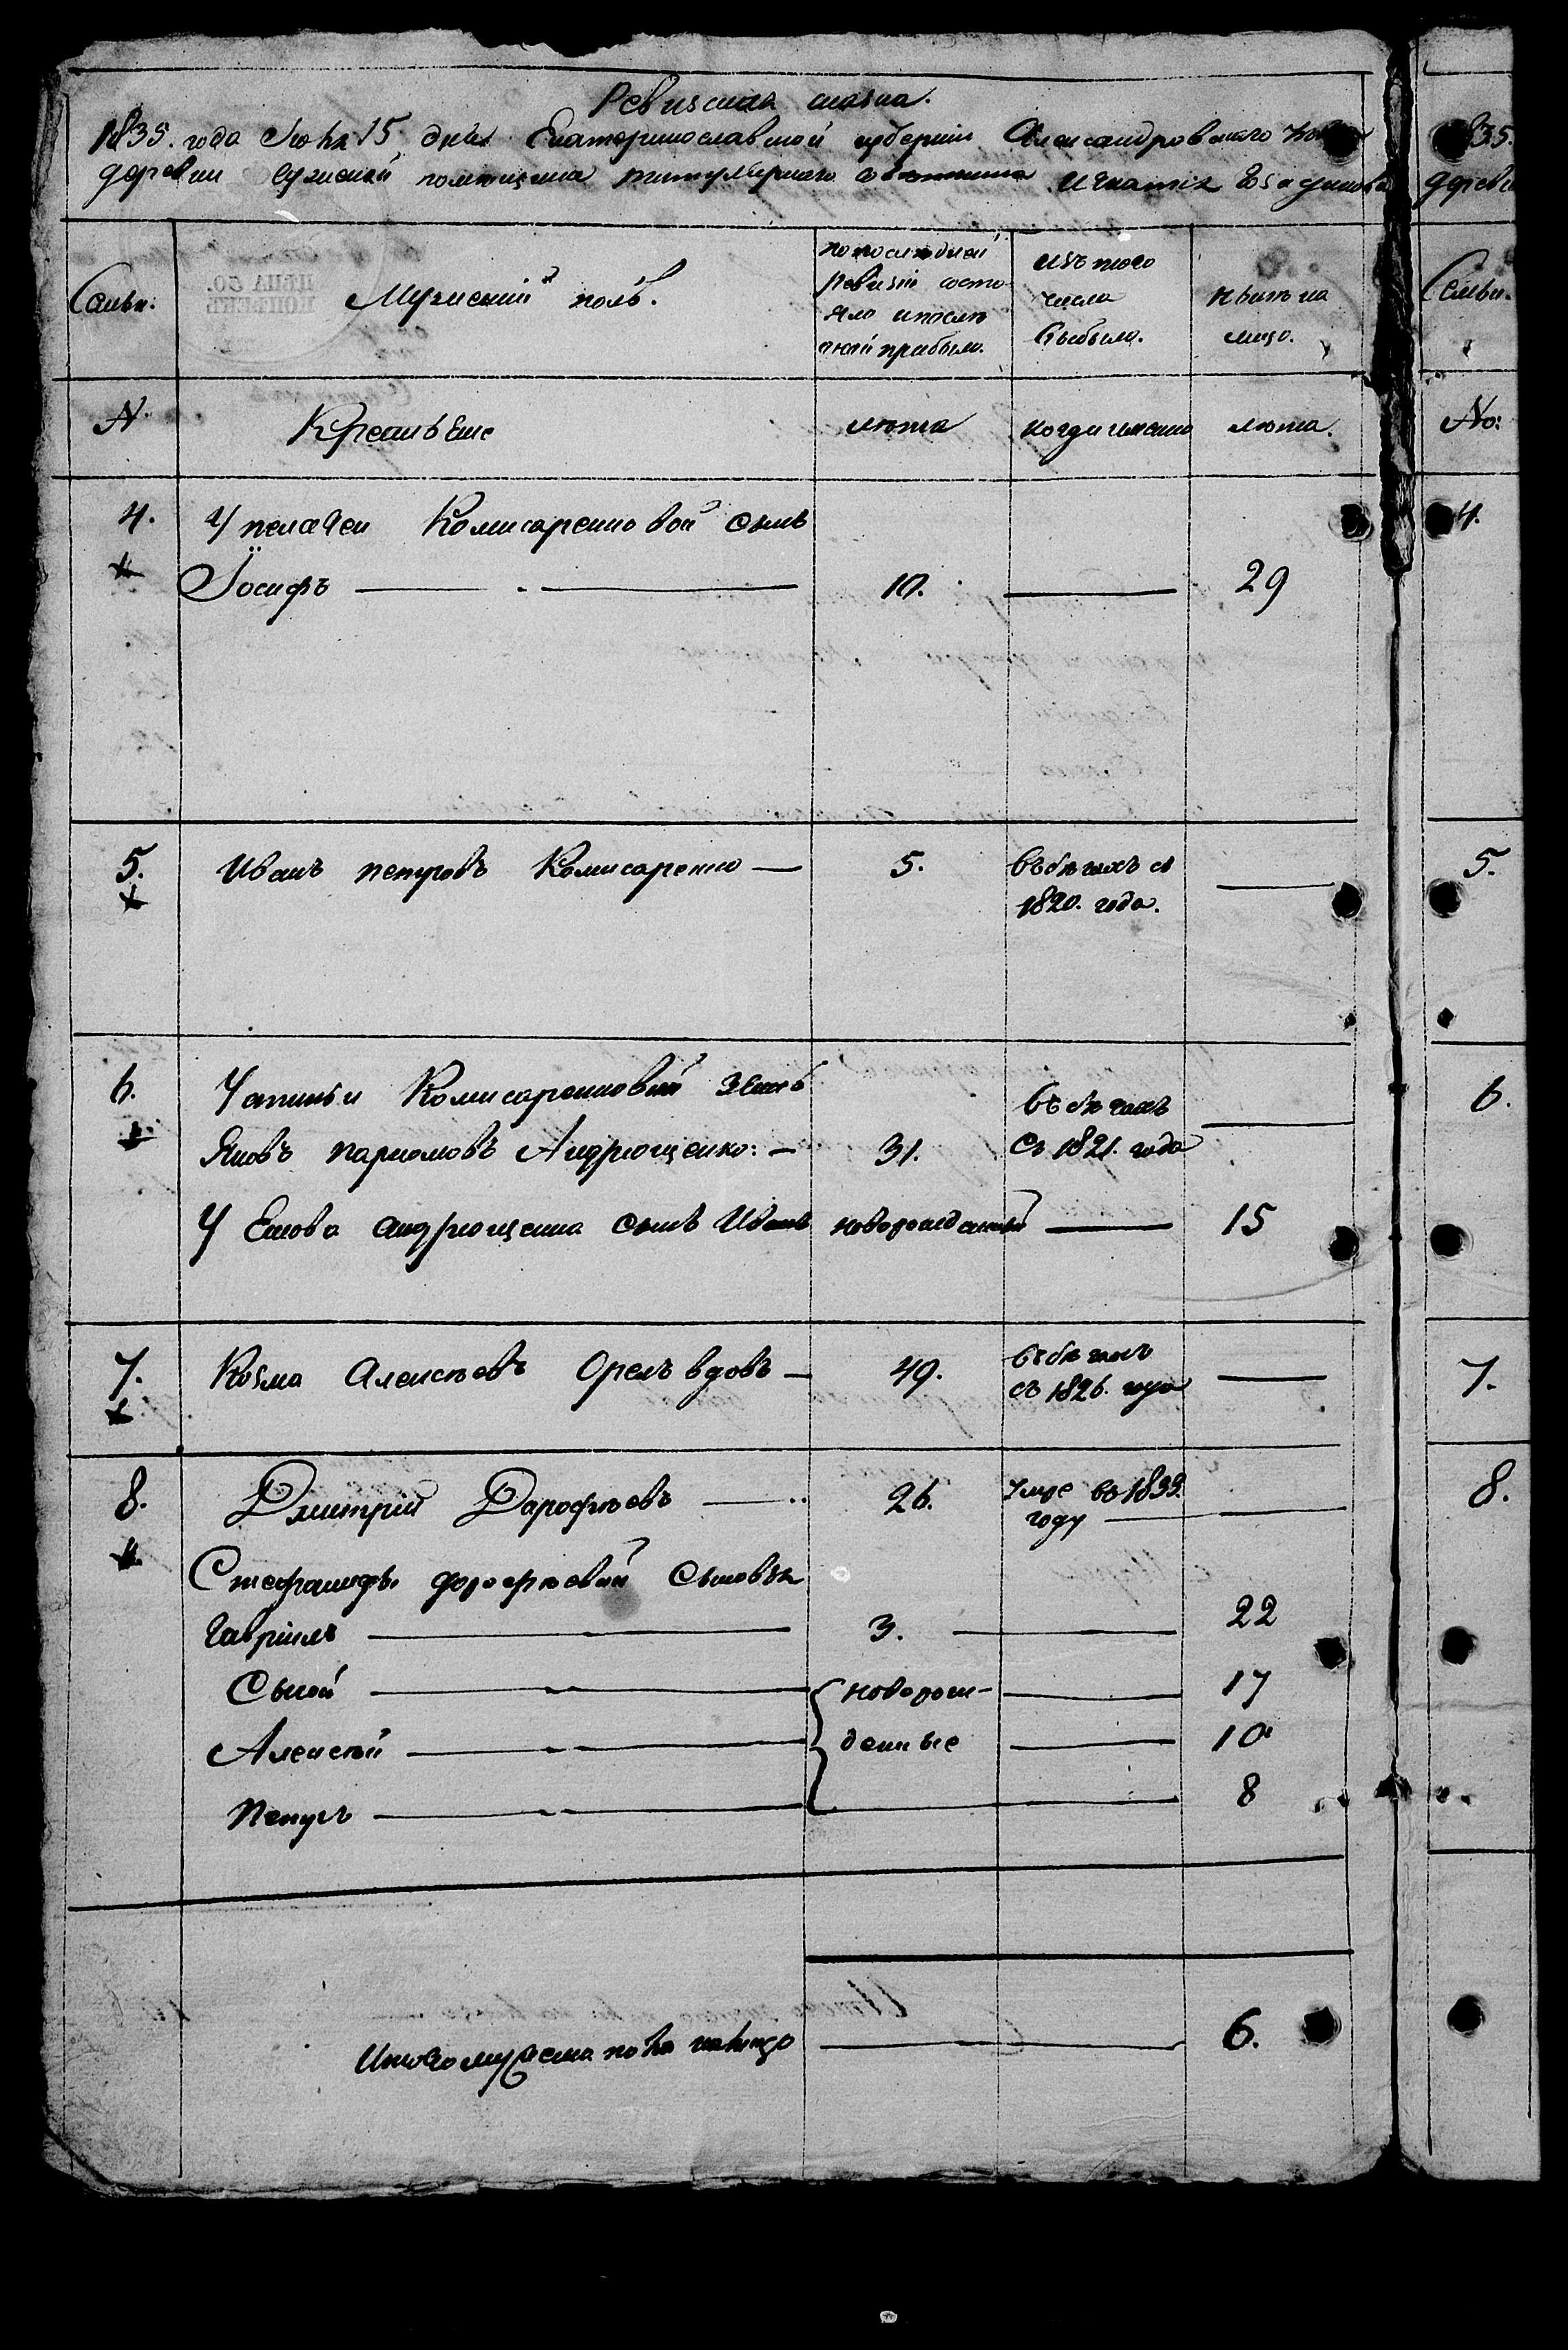 Ревизская сказка.
1835. года Июля 15 дня Екатеринославской губернии Александровского
деревни помещика титулярного советника Игнатия
Семьи. Мужеский полъ. по последней ревизіи состояло и после оной прибыло. изъ того числа выбыло. ныне на лицо.
№ Крестьяне лета когда именно лета.
4. У пелагеи Комисаренковой сынъ
Іосифъ 10. 29
5. Иванъ петровъ Комисаренко 5. въ бегахъ съ
1820. года.
6. У Комисаренковой зять въ бегахъ
Яковъ Андрющенко: 31. Съ 1821. года
У Екова андрющенка сынъ Иванъ новорожденный 15
7. Козма Алексеевъ Орелъ вдовъ 49. въ бегахъ
съ 1826. года
8. Дмитрій Дарофеевъ 26. умре въ 1833.
году
Сыновья
Гавріилъ 3. 22
Сысой новорож- 17
Алексей денные 10
Петръ 8
Итого мужеска пола налицо 6.
35.
дереве
Семьи.
No:
4.
5.
6.
7.
8.